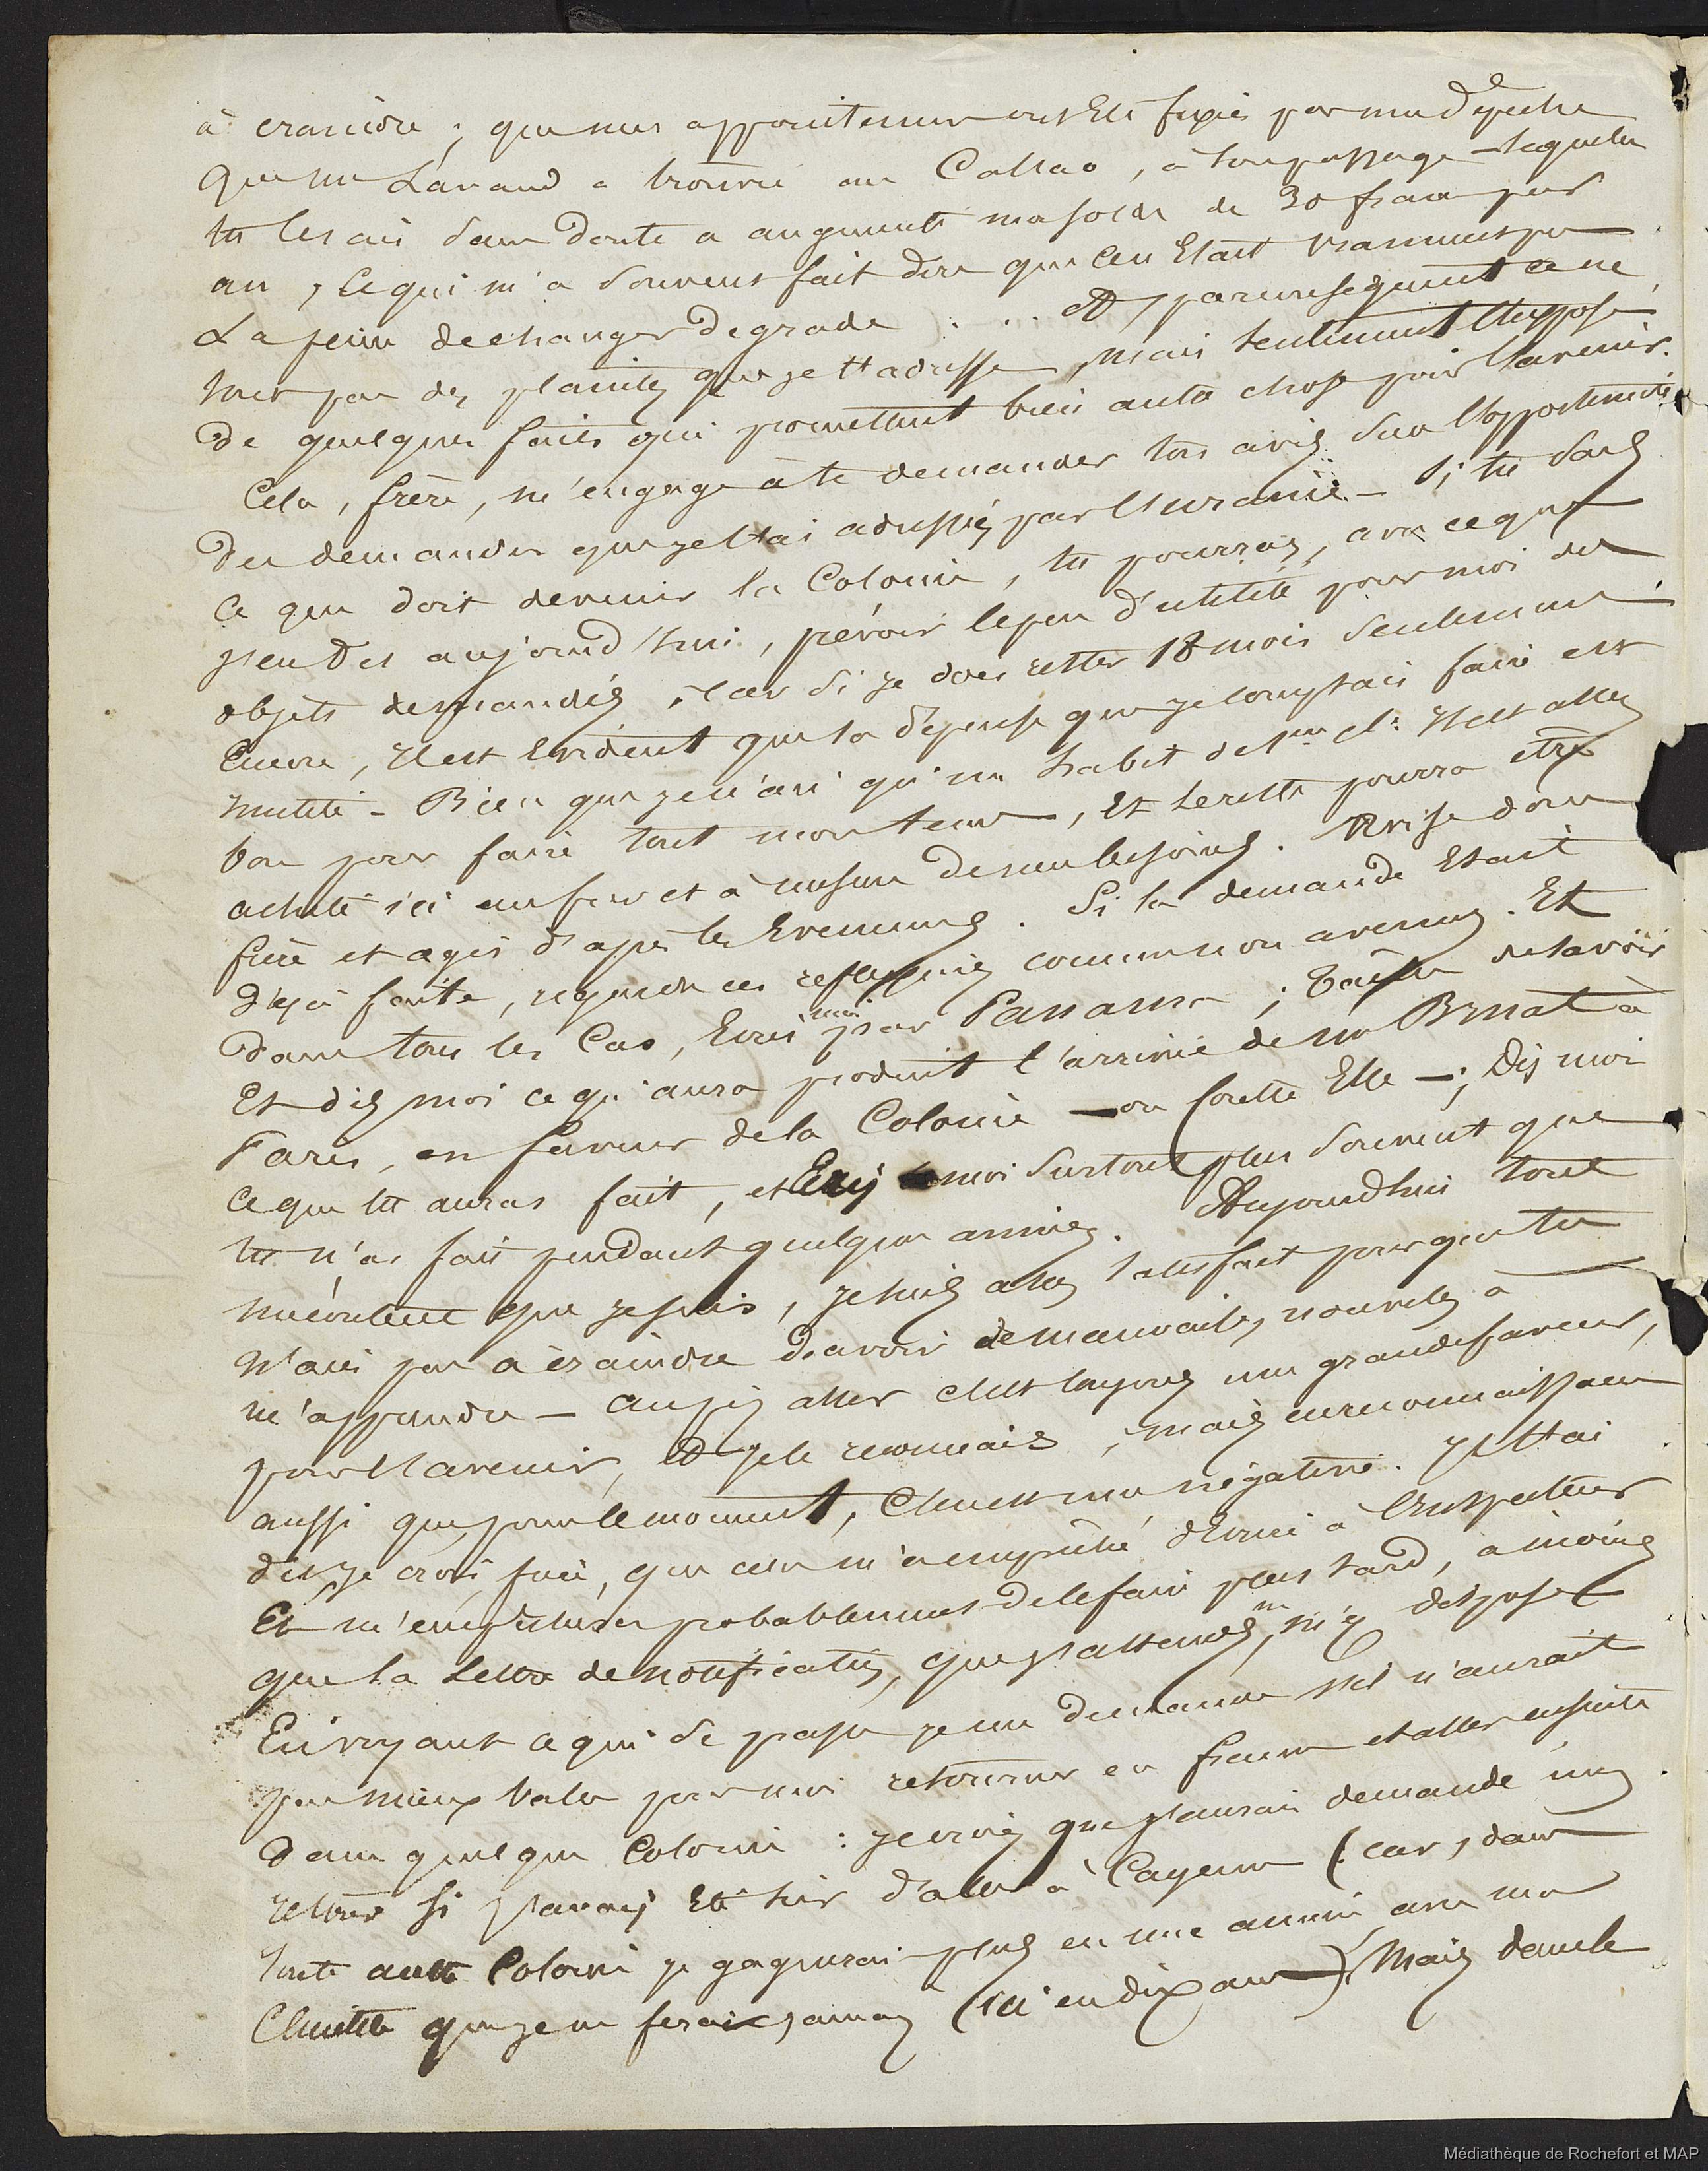 à craindre ; que mes appointemens ont été fixés par une dépêche
que Mr Lavaud a trouvée au Callao, à son passage - laquelle
tu les ais sans doute a augmenté ma solde de 30 francs par
an, ce qui m'a souvent fait dire que ce n'était vraiment pas
La peine de changer de grade . . . et, par conséquent ce ne
sont pas des plaintes que je t'adresse, mais seulement l'exposé
de quelques faits qui promettent bien autre chose pour l'avenir.
Cela, frère, m'engage à te demander ton avis sur l'opportunité
des demandes que je t'ai adressées par l'Uranie - Si tu sais
ce que doit devenir la Colonie, tu pourras, avec ce que
je te dis aujourd'hui, prévoir le peu d'utilité pour moi des
objets demandés, car si je dois rester 18 mois seulement
encore, il est évident que la dépense que je comptais faire est
inutile - Bien que je n'ai qu'un habit de 1ère cl: il est assez
bon pour faire tout mon tems, et le reste pourra être
acheté ici au fur et à mesure de mes besoins. Avise donc
frère et agis d'après les Evenemens. Si la demande était
déjà faite, regarde ces reflexions comme non avenues. Et
dans tous les Cas, Ecris moi par Panama ; tâche de savoir
Et dis moi ce qu'aura produit l'arrivée de Mr Bruat à
Paris, en faveur de la Colonie - ou contre Elle - ; Dis moi
ce que tu auras fait, et Ecris moi surtout plus souvent que
tu n'as fait pendant quelques années. Aujourd'hui tout
mécontent que je suis, je suis assez satisfait pour que tu
n'aies pas à craindre d'avoir de mauvaises nouvelles à
m'apprendre - aussi aller c'est toujours une grande faveur,
pour l'avenir, et je le reconnais ; mais en reconnaissant
aussi que, pour le moment, c'en est une négative. Je t'ai
dit, je crois, frère, que cela m'a empêché d'Ecrire à l'Inspecteur
Et m'empêchera probablement de le faire plus tard, à moins
que la Lettre de notification, que j'attends, ne m'y dispose
En voyant ce qui se passe je me demande s'il n'aurait
pas mieux valu pour moi retourner en france et aller ensuite
dans quelque Colonie : je crois que j'aurais demandé mon
retour si j'avais été sûr d'aller à Cayenne (car, dans
toute autre Colonie je gagnerai plus en une année avec ma
Clientèle que je ne ferai jamais ici en dix ans) Mais dans le
Médiathèque de Rochefort et MAP